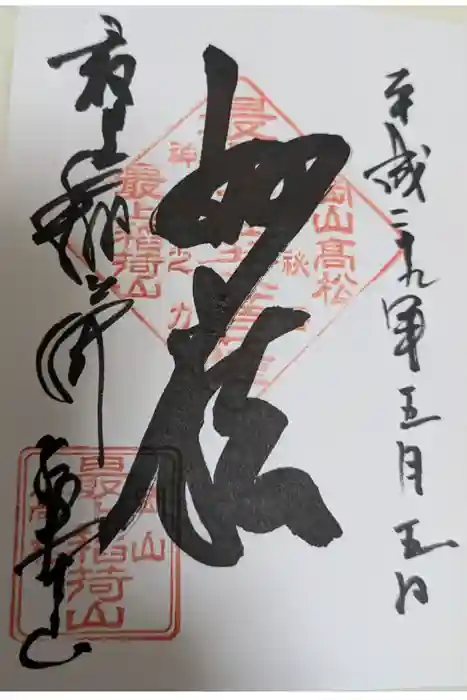 平成二十九年五月五日
妙法
最上稲荷
総本山
岡山高松
最上稲荷山
岡山
最上稲荷山